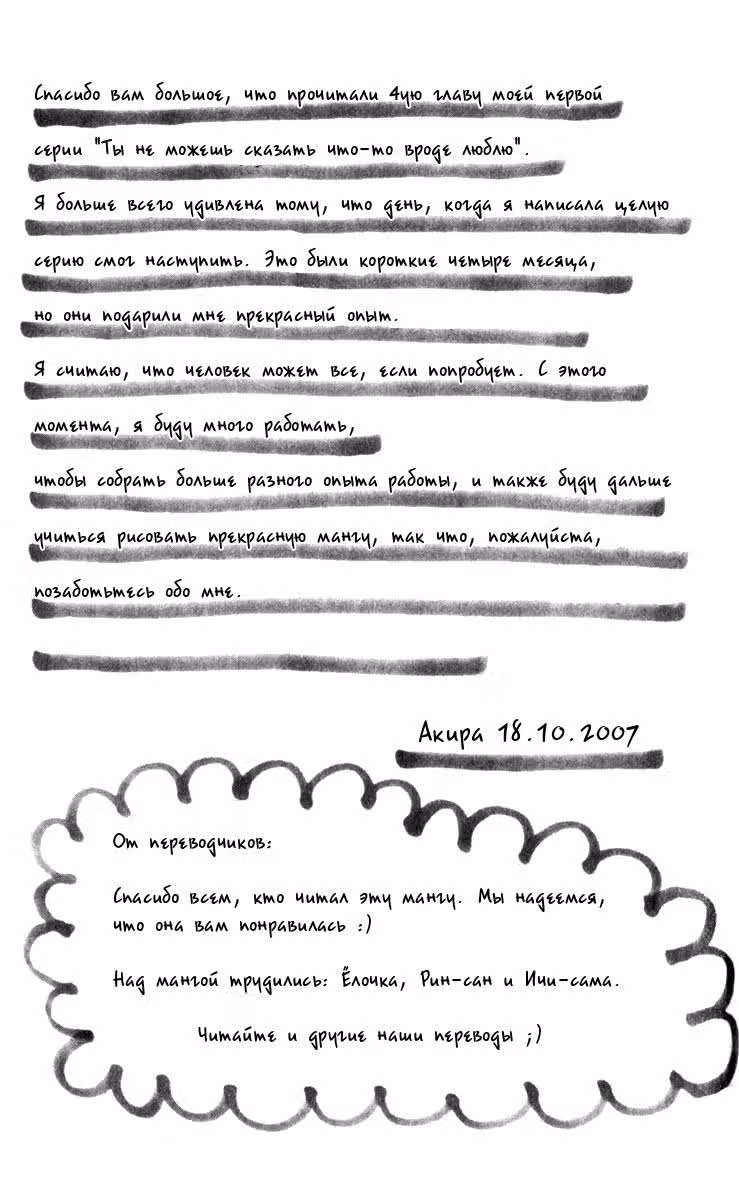 Спасибо вам большое, что прочитали 4ую главу моей первой
серии "Ты не можешь сказать что-то вроде люблю".
Я больше всего удивлена тому, что день, когда я написала целую
серию смог наступить. Это были короткие четыре месяца,
но они подарили мне прекрасный опыт.
Я считаю, что человек может все, если попробует. С этого
момента, я буду много работать,
чтобы собрать больше разного опыта работы, и также буду дальше
учиться рисовать прекрасную мангу, так что, пожалуйста,
позаботьтесь обо мне.
Акира 18.10.2007
От переводчиков:
Спасибо всем, кто читал эту мангу. Мы надеемся,
что она вам понравилась :)
Над мангой трудились: Ёлочка, Рин-сан и Ичи-сама.
Читайте и другие наши переводы ;)